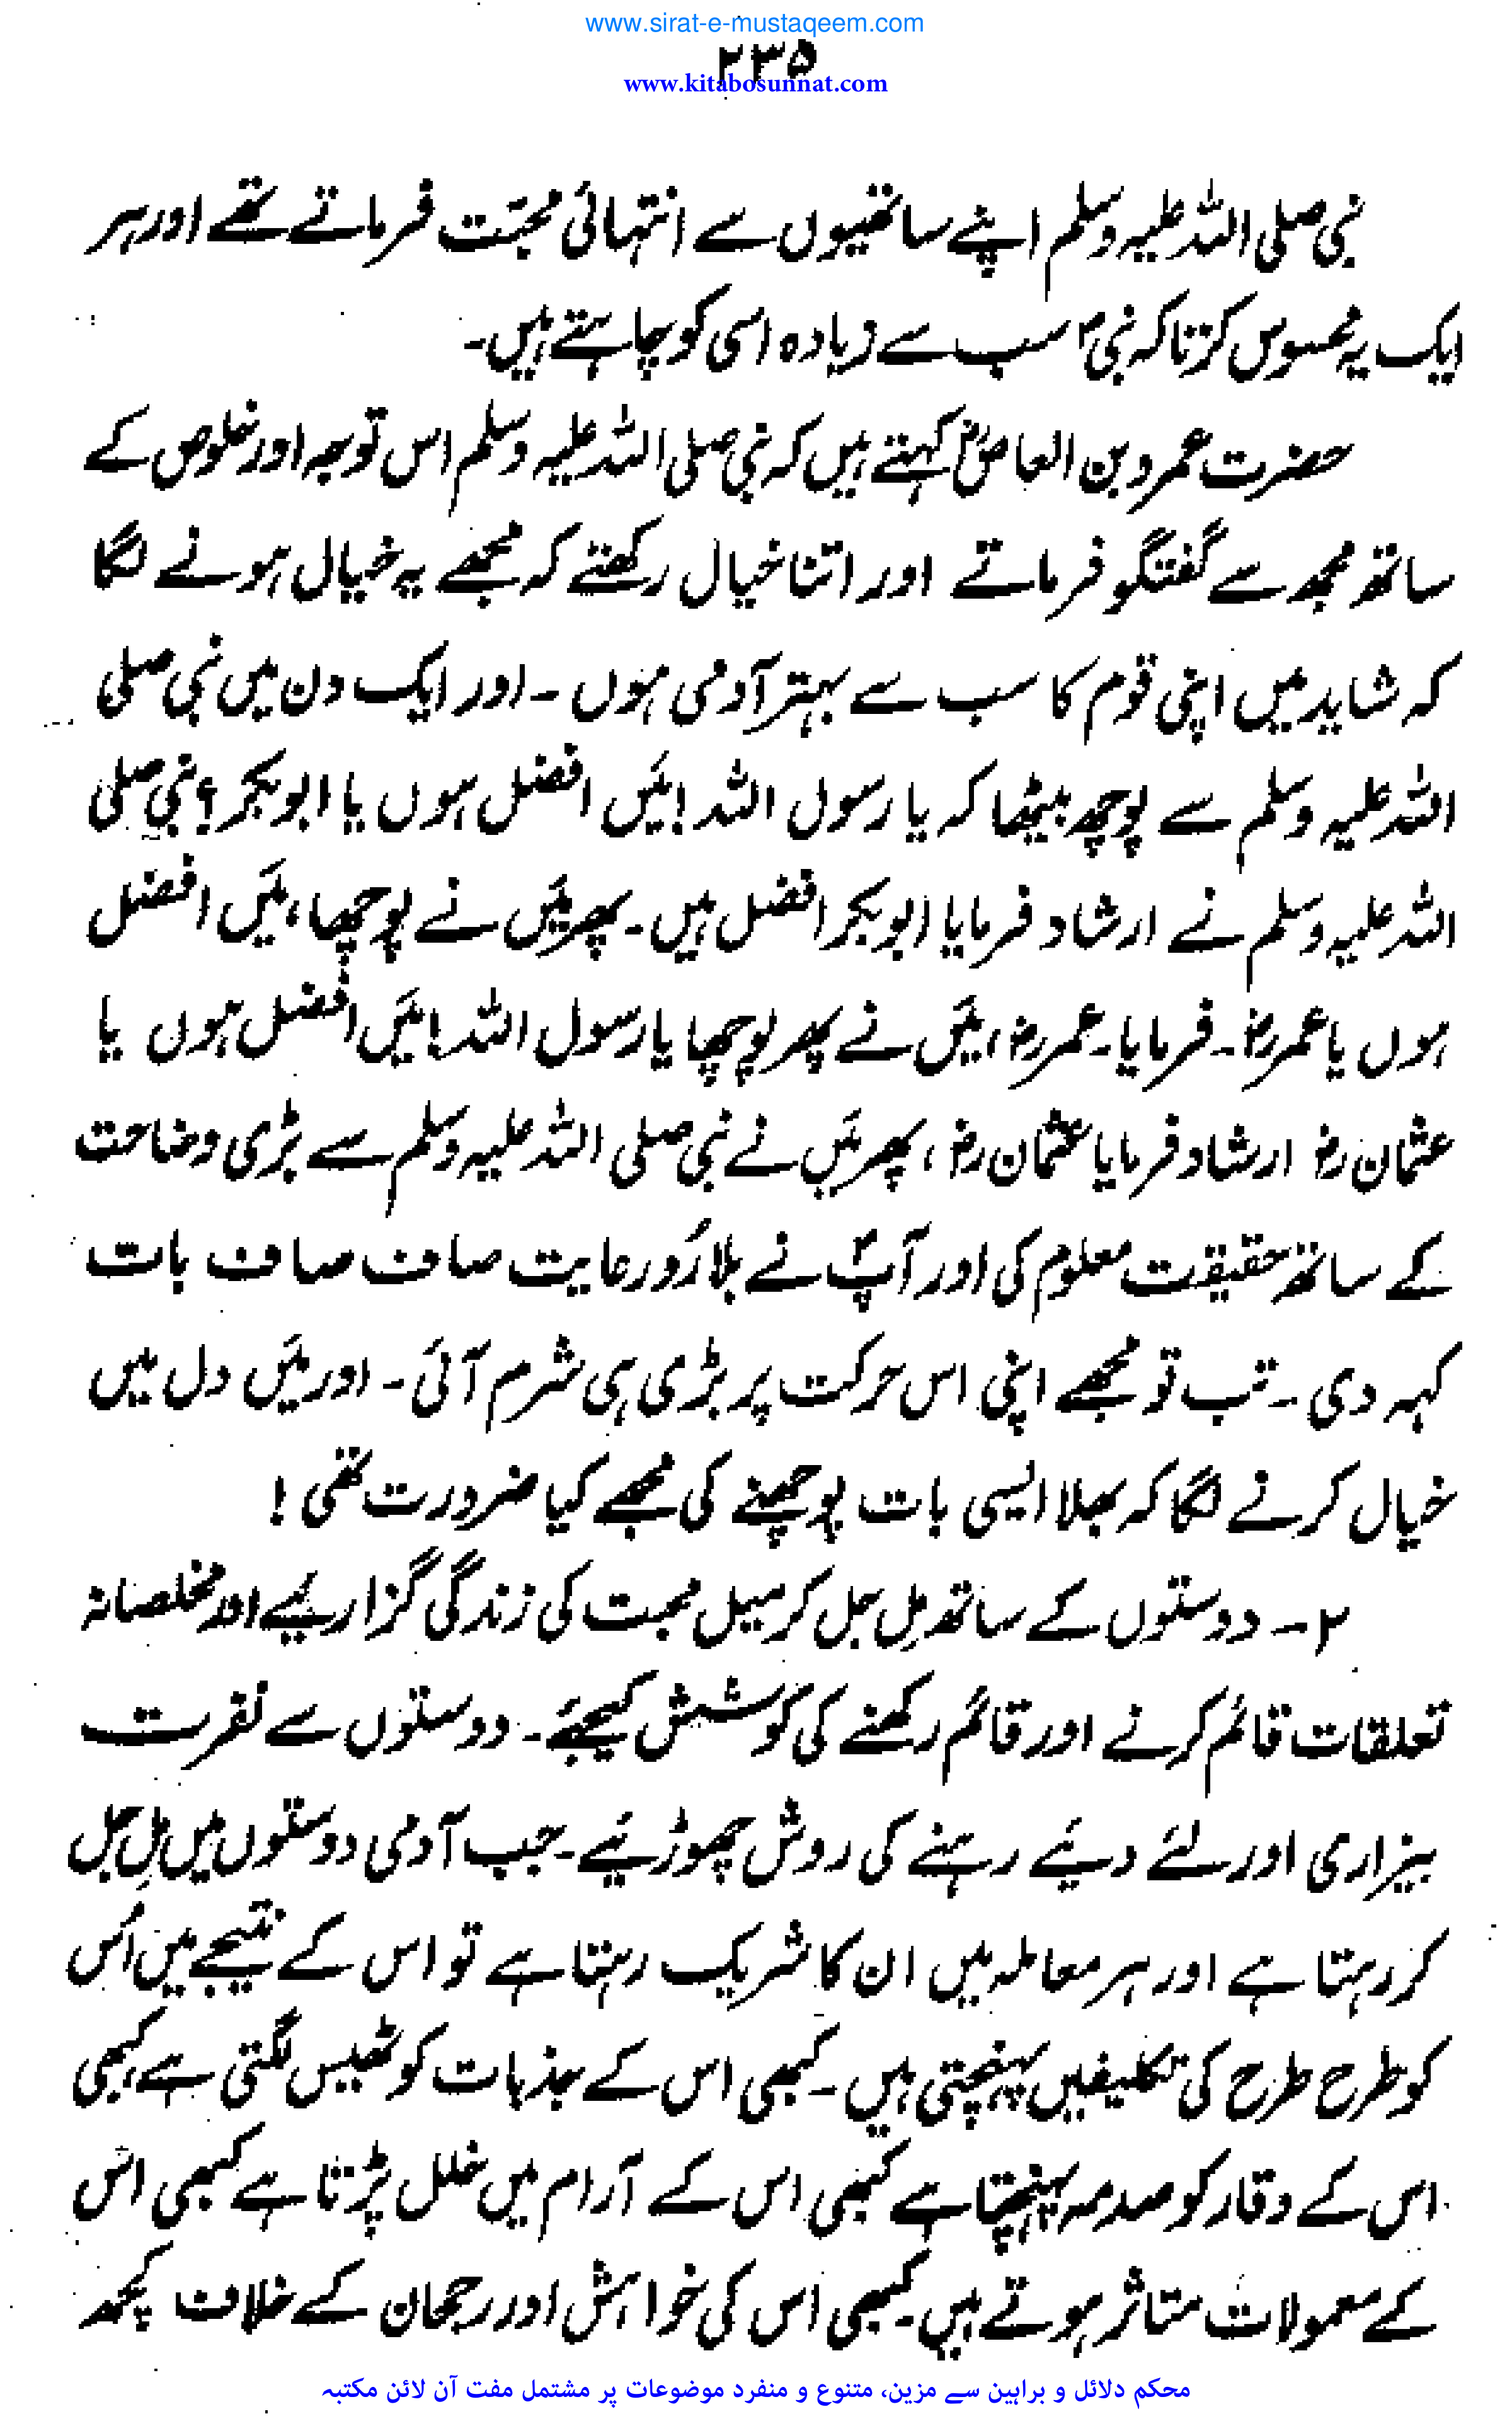 www.sirat-e-mustaqeem.com
۲۳۵
www.kitabosunnat.com
نبی صلی اللہ علیہ وسلم اپنے ساتھیوں سے انتہائی محبّت فرماتے تھے اور ہر
ایک یہ محسوس کرتا کہ نبیؐ سب سے زیادہ اسی کو چاہتے ہیں۔
حضرت عمرو بن العاصؓ کہتے ہیں کہ نبی صلی اللہ علیہ وسلم اس توجہ اور خلوص کے
ساتھ مجھ سے گفتگو فرماتے اور اتنا خیال رکھتے کہ مجھے یہ خیال ہونے لگا
کہ شاید میں اپنی قوم کا سب سے بہتر آدمی ہوں ۔ اور ایک دن میں نبی صلی
اللہ علیہ وسلم سے پوچھ بیٹھا کہ یا رسول اللہ! میَں افضل ہوں یا ابوبکر؟ نبی صلی
اللہ علیہ وسلم نے ارشاد فرمایا ابوبکر افضل ہیں۔ پھر میَں نے پوچھا، میَں افضل
ہوں یا عمررضؓ۔ فرمایا۔ عمررضؓ، میَں نے پھر پوچھا یا رسول اللہ! میَں افضل ہوں یا
عثمان رضؓ ارشاد فرمایا عثمان رضؓ، پھر میَں نے نبی صلی اللہ علیہ وسلم سے بڑی وضاحت
کے ساتھ حقیقت معلوم کی اور آپؐ نے بلا رُو رعایت صاف صاف بات
کہہ دی ۔ تب تو مجھے اپنی اس حرکت پر بڑی ہی شرم آئی ۔ اور میَں دل میں
خیال کرنے لگا کہ بھلا ایسی بات پوچھنے کی مجھے کیا ضرورت تھی !
۲۔ دوستوں کے ساتھ مِل جل کر میل محبت کی زندگی گزاریئے اور مخلصانہ
تعلقات قائم کرنے اور قائم رکھنے کی کوشش کیجئے۔ دوستوں سے نفرت
بیزاری اور لئے دیئے رہنے کی روش چھوڑیئے۔ جب آدمی دوستوں میں مِل جل
کر رہتا ہے اور ہر معاملہ میں ان کا شریک رہتا ہے تو اس کے نتیجے میں اُس
کو طرح طرح کی تکلیفیں پہنچتی ہیں۔ کبھی اس کے جذبات کو ٹھیس لگتی ہے، کبھی
اس کے وقار کو صدمہ پہنچتا ہے کبھی اس کے آرام میں خلل پڑتا ہے کبھی اس
کے معمولات متاثر ہوتے ہیں۔ کبھی اس کی خواہش اور رجحان کے خلاف کچھ
محکم دلائل و براہین سے مزین، متنوع و منفرد موضوعات پر مشتمل مفت آن لائن مکتبہ